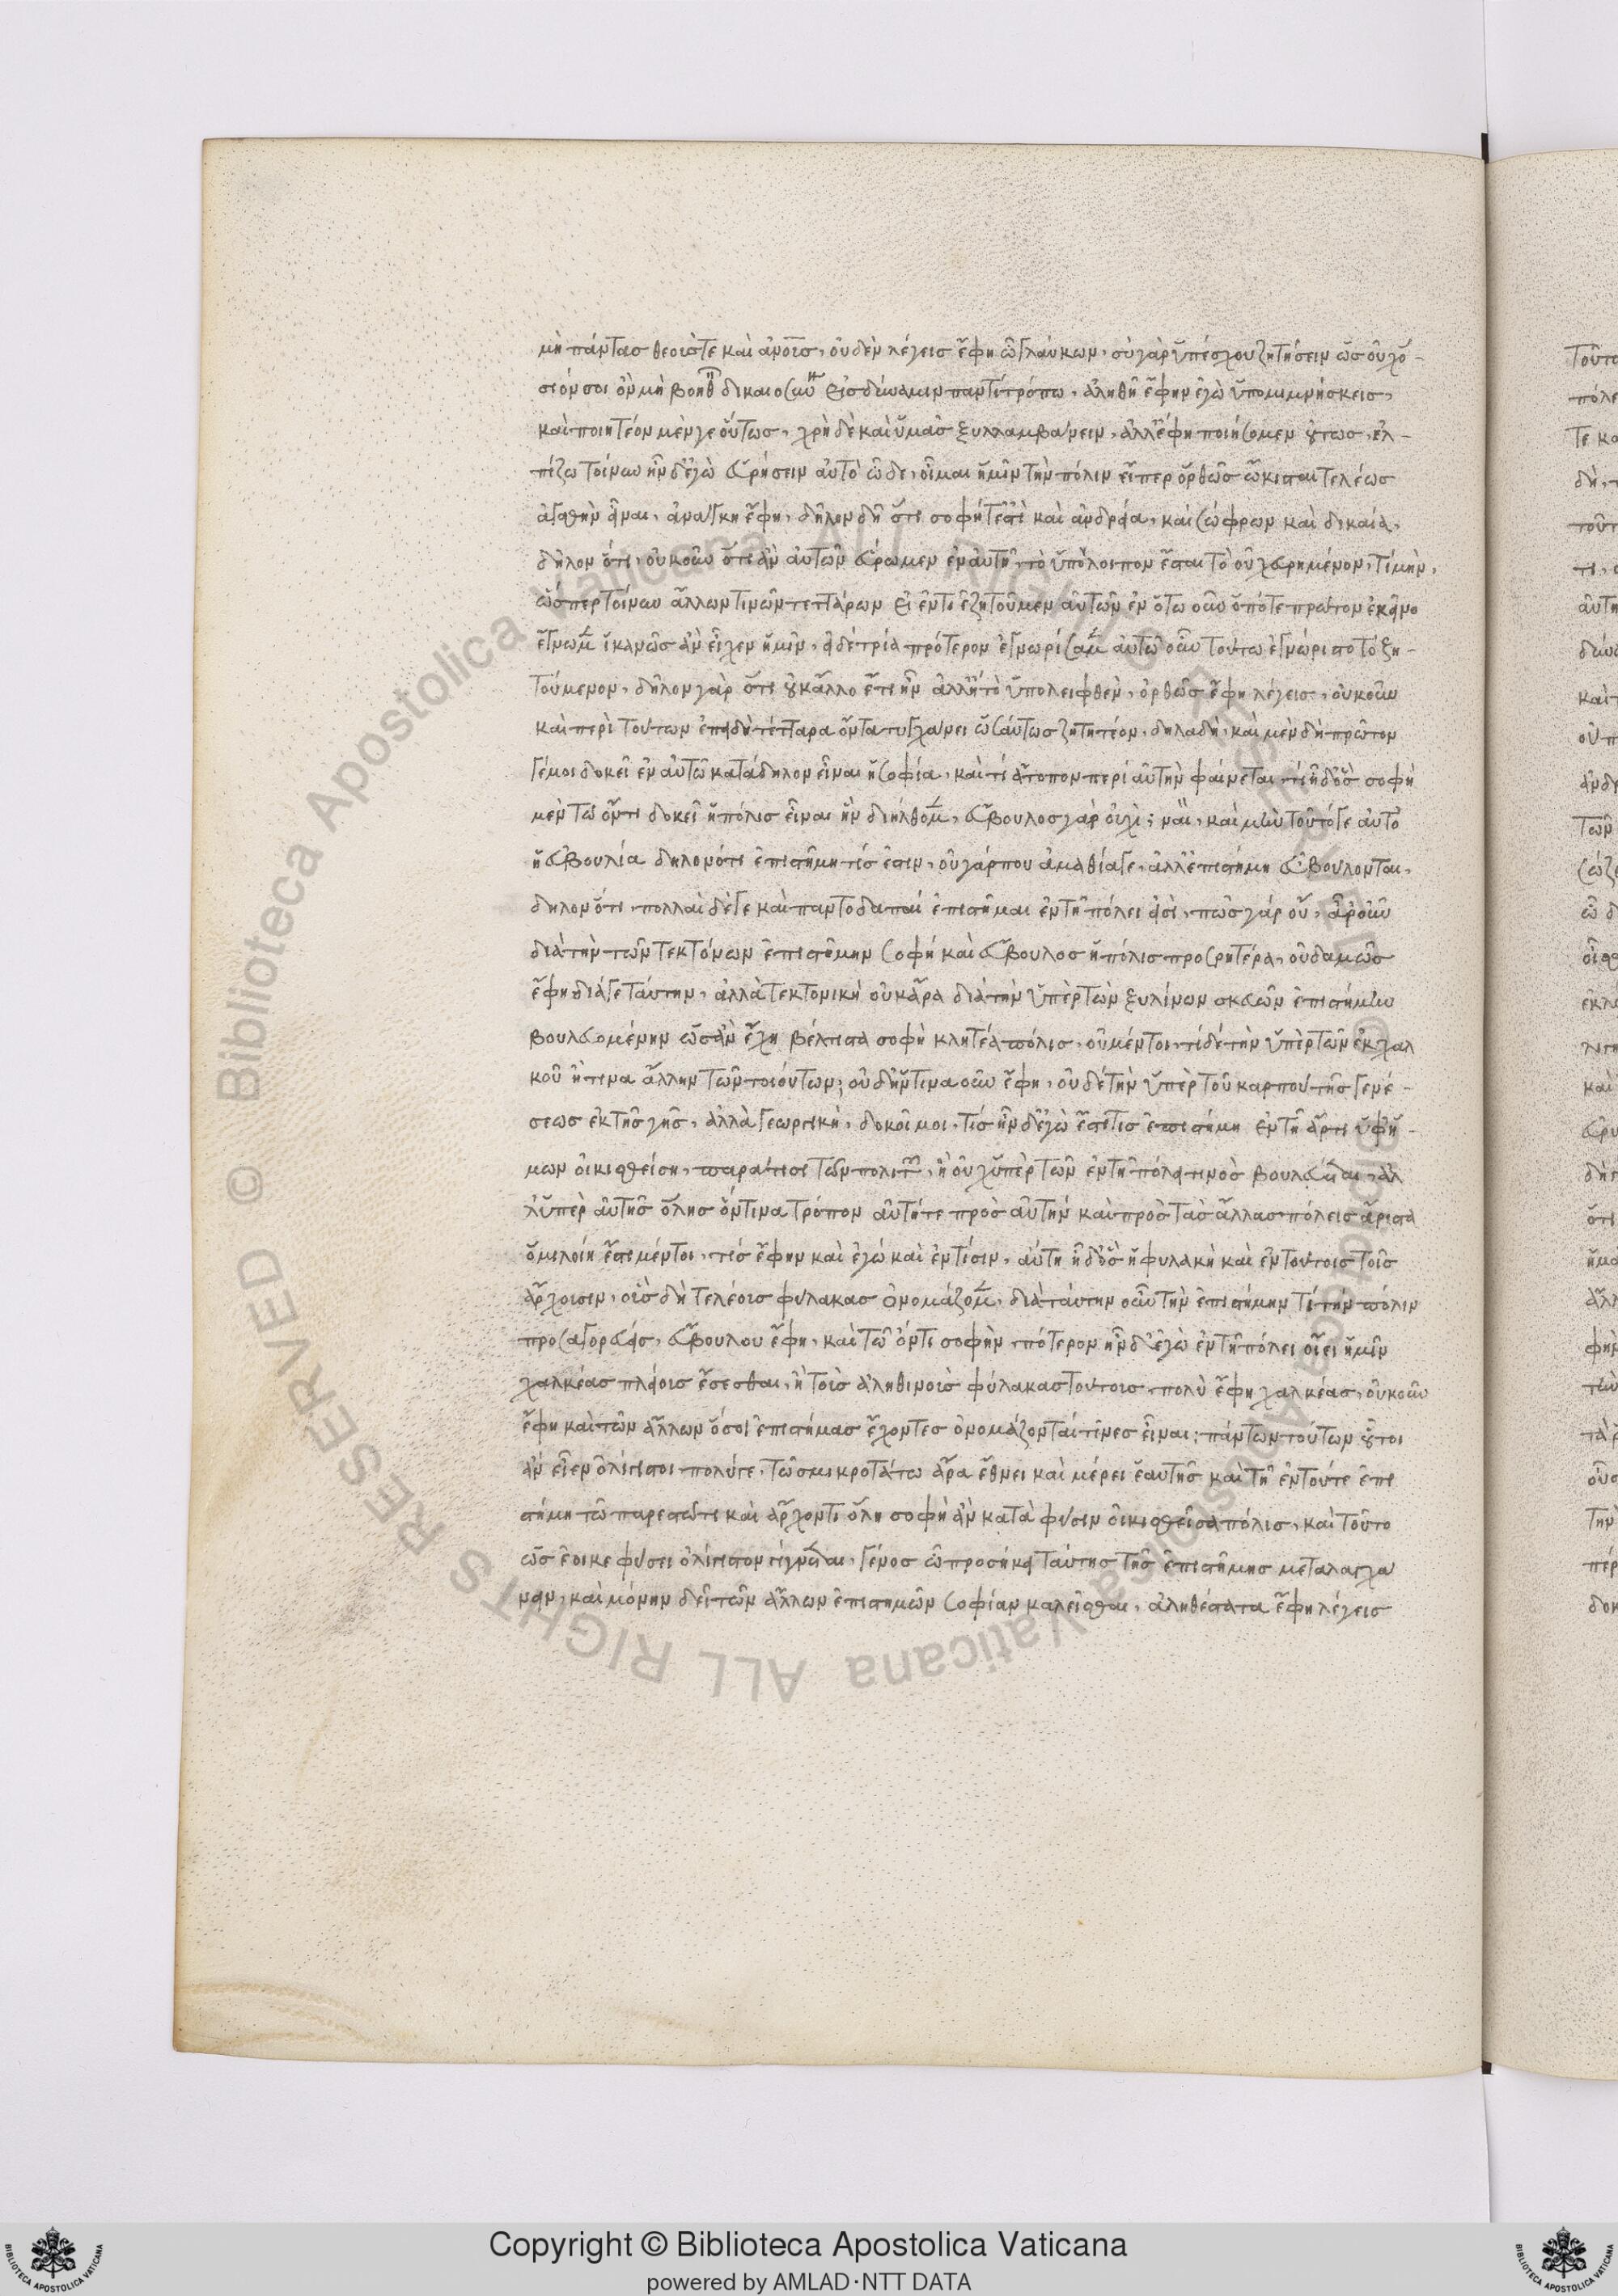 μὴ πάντασ θεούστε καὶ ἀνο͞υσ, οὐδὲν λέγεισ ἔφη ὦ γλαύκων, σὺ γὰρ ὑπέσχου ζητήσειν ὡσ οὐχ ὅ-
σιόν σοι ὂν μὴ βοηθ δικαιοσύν εἰσ δύναμιν παντὶ τρόπω, ἀληθῆ ἔφην ἐγὼ ὑπομιμνήσκεισ,
καὶ ποιητέον μέν γε οὕτωσ, χρὴ δὲ καὶ ὑμᾶσ ξυλλαμβάνειν, ἀλλ' ἔφη ποιήσομεν οὕτωσ, ἐλ-
πίζω τοίνυν ἦν δ' ἐγὼ εὑρήσειν αὐτὸ ὧδε, οἶμαι ἡμῖν τὴν πόλιν εἴπερ ὀρθῶσ ὤκισται τελέωσ
ἀγαθὴν εἶναι, ἀνάγκη ἔφη, δῆλον δὴ ὅτι σοφή τ' ἐστὶ καὶ ἀνδρεία, καὶ σώφρων καὶ δικαία,
δῆλον ὅτι, οὐκοῦν ὅτι ἂν αὐτῶν εὕρωμεν ἐν αὐτῆ, τὸ ὑπόλοιπον ἔσται τὸ οὐχ εὑρημένον, τί μὴν,
ὥσπερ τοίνυν ἄλλων τινῶν τεττάρων εἰ ἕν τι ἐζητοῦμεν αὐτῶν ἐν ὅτω οὖν ὁπότε πρῶτον ἐκεῖνο
ἔγνωμ ἱκανῶσ ἂν εἶχεν ἡμῖν, εἰ δὲ τρία πρότερον ἐγνωρίσαμ αὐτῶ οὖν τούτω ἐγνώριστο τὸ ζη-
τούμενον, δῆλον γὰρ ὅτι οὐκ ἄλλο ἔτι ἦν ἀλλ' ἢ τὸ ὑπολειφθὲν, ὀρθῶσ ἔφη λέγεισ, οὐκοῦν
καὶ περὶ τούτων ἐπειδὴ τέτταρα ὄντα τυγχάνει ὡσαύτωσ ζητητέον, δηλαδή, καὶ μὲν δὴ πρῶτον
γέ μοι δοκεῖ ἐν αὐτῶ κατάδηλον εἶναι ἡ σοφία, καὶ τί ἄτοπον περὶ αὐτὴν φαίνεται, τί ἦ δ' ὅσ σοφὴ
μὲν τῶ ὄντι δοκεῖ ἡ πόλισ εἶναι ἣν διήλθομ, εὔβουλοσ γὰρ οὐχί; ναί, καὶ μὴν τοῦτό γε αὐτὸ
ἡ εὐβουλία δηλονότι ἐπιστήμη τίσ ἐστιν, οὐ γάρ που ἀμαθία γε, ἀλλ' ἐπιστήμη εὖ βουλονται,
δηλονότι, πολλαὶ δέ γε καὶ παντοδαπαὶ ἐπιστῆμαι ἐν τῆ πόλει εἰσὶ, πῶσ γὰρ οὔ, ἆρ' οὖν
διὰ τὴν τῶν τεκτόνων ἐπιστήμην σοφὴ καὶ εὔβουλοσ ἡ πόλισ προσρητέα, οὐδαμῶσ
ἔφη διά γε ταύτην, ἀλλὰ τεκτονική οὐκ ἄρα διὰ τὴν ὑπὲρ τῶν ξυλίνων σκευῶν ἐπιστήμην
βουλευομένην ὡσ ἂν ἔχη βέλτιστα σοφὴ κλητέα πόλισ, οὐ μέντοι, τί δὲ τὴν ὑπὲρ τῶν ἐκ χαλ
κοῦ ἤ τινα ἄλλην τῶν τοιούτων; οὐδ' ἥντινα οὖν ἔφη, οὐδὲ τὴν ὑπὲρ τοῦ καρποῦ τῆσ γενέ-
σεωσ ἐκ τῆσ γῆσ, ἀλλὰ γεωργική, δοκεῖ μοι, τίσ ἦν δ' ἐγὼ ἔστι τισ ἐπιστήμη ἐν τῆ ἄρτι ὑφ' ἡ-
μων οἰκισθείση, παρά τισι τῶν πολιτ, ἣ οὐχ ὑπὲρ τῶν ἐν τῆ πόλει τινοσ βουλεύεται, ἀλ
λ' ὑπὲρ αὑτῆσ ὅλησ ὅντινα τρόπον αὐτή τε πρὸσ αὑτὴν καὶ πρὸσ τὰσ ἄλλασ πόλεισ ἄριστα
ὁμιλοίη ἔστι μέντοι, τίσ ἔφην καὶ ἐγώ καὶ ἐν τίσιν, αὕτη ἦ δ' ὅσ ἡ φυλακὴ καὶ ἐν τούτοισ τοῖσ
ἄρχουσιν, οὓσ δὴ τελέουσ φύλακασ ὀνομάζομ, διὰ ταύτην οὖν τὴν ἐπιστήμην τί τὴν πόλιν
προσαγορεύεισ, εὔβουλον ἔφη, καὶ τῶ ὄντι σοφὴν, πότερον ἦν δ' ἐγὼ ἐν τῆ πόλει οἴει ἡμῖν
χαλκέασ πλείουσ ἔσεσθαι, ἢ τοὺσ ἀληθινοὺσ φύλακασ τούτουσ, πολὺ ἔφη χαλκέασ, οὐκοῦν
ἔφη καὶ τῶν ἄλλων ὅσοι ἐπιστήμασ ἔχοντεσ ὀνομάζονταί τινεσ εἶναι; πάντων τούτων οὗτοι
ἂν εἶεν ὀλίγιστοι πολύ γε, τῶ σμικροτάτω ἄρα ἔθνει καὶ μέρει ἑαυτῆσ καὶ τῆ ἐν τούτω ἐπι
στήμη τῶ προεστῶτι καὶ ἄρχοντι ὅλη σοφὴ ἂν κατὰ φύσιν οἰκισθεῖσα πόλισ, καὶ τοῦτο
ὡσ ἔοικε φύσει ὀλίγιστον γίγνεται, γένοσ ὧ προσήκει ταύτησ τῆσ ἐπιστήμησ μεταλαγχά
νειν, καὶ μόνην δεῖ τῶν ἄλλων ἐπιστημῶν σοφίαν καλεῖσθαι, ἀληθέστατα ἔφη λέγεισ
Copyright © Biblioteca Apostolica Vaticana
powered by AMLAD·NTT DATA